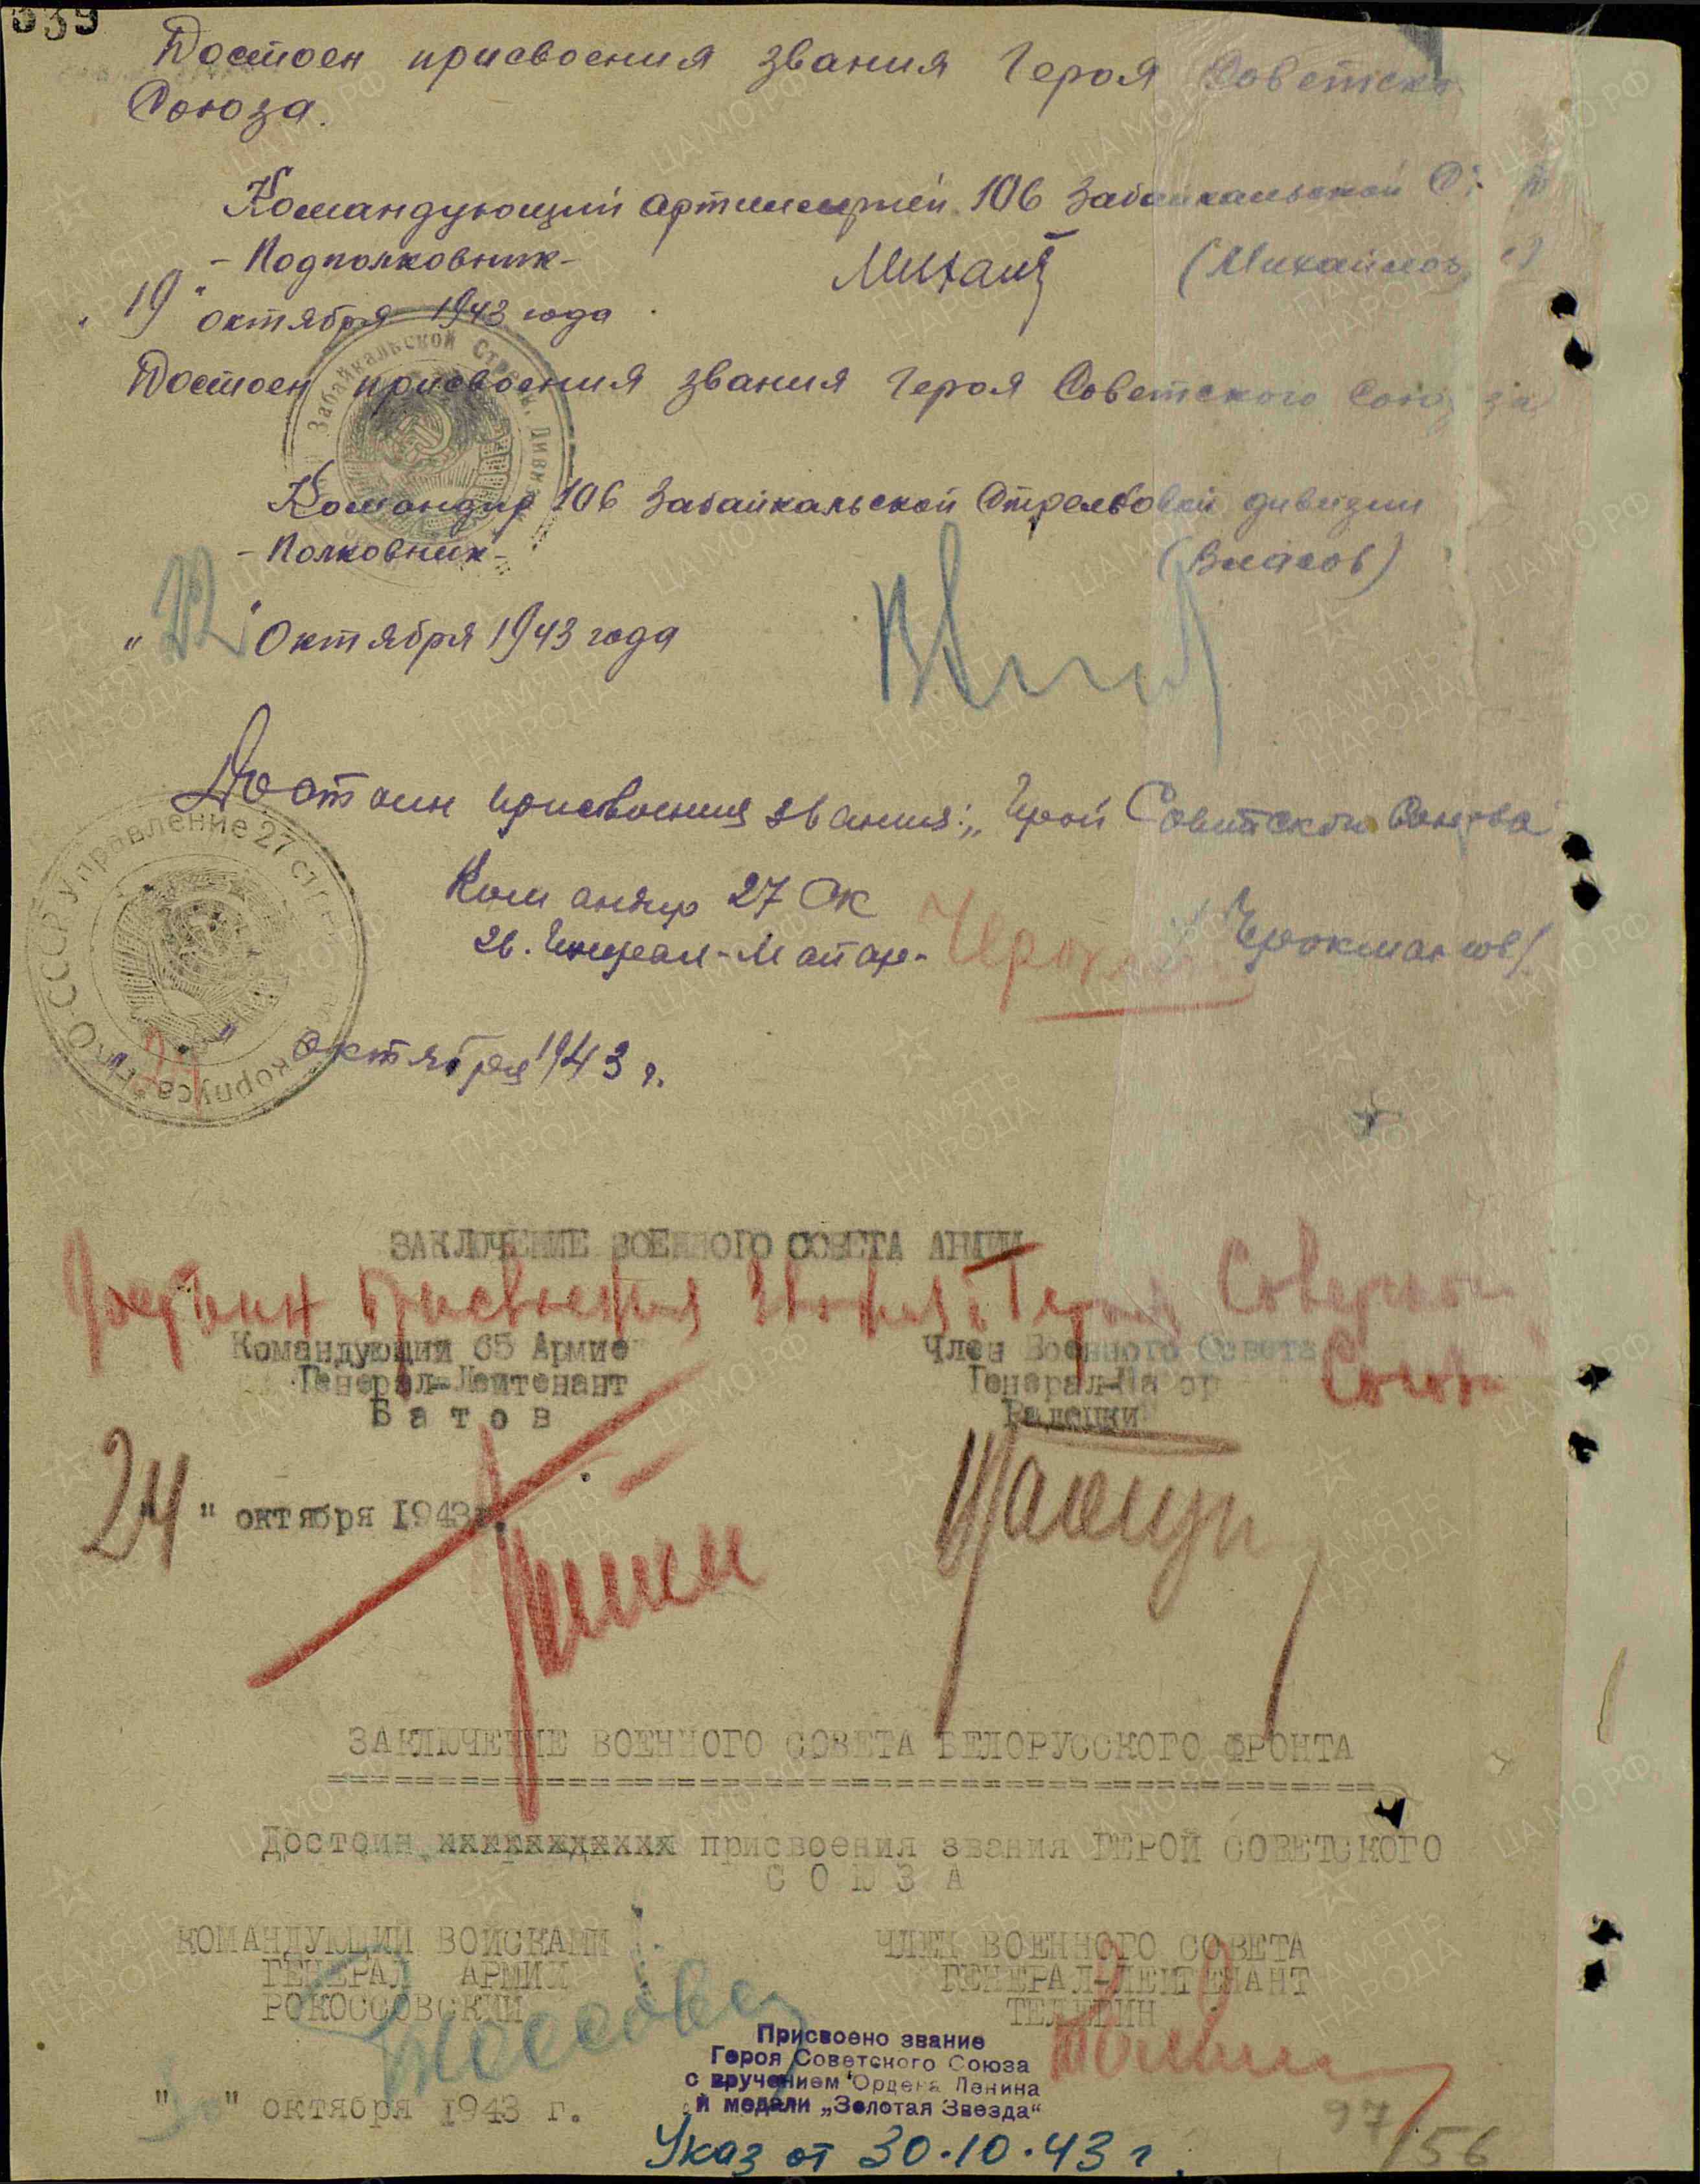 339
Достоен присвоения звания Героя Советско
Союза.
Командующий артиллерией 106 Забайкальской С. Д
- Подполковник-
Михайл (Михайлов)
"19" октября 1943 года
Достоен присвоения звания Героя Советского Союза
Забайкальской Стрелк. Дивиз
Командир 106 Забайкальской Стрелковой дивизии
- Полковник- (Власов)
"22" Октября 1943 года
Достоин присвоения звания: "Герой Советского Союза
НКО СССР Управление 27 стр. корпуса
Командир 27 СК
Гв. Генерал-Майор- /Черокманов/
"21" октября 1943 г.
ЗАКЛЮЧЕНИЕ ВОЕННОГО СОВЕТА АРМИИ
Достоин присвоения звания "Героя Советского
Союза"
Командующий 65 Армие Член Военного Совета
Генерал-Лейтенант Генерал-Ма ор
Батов Радецки
24 " октября 1943 г.
ЗАКЛЮЧЕНИЕ ВОЕННОГО СОВЕТА БЕЛОРУССКОГО ФРОНТА
Достоин присвоения звания ГЕРОЙ СОВЕТСКОГО
СОЮЗА
КОМАНДУЮЩИЙ ВОЙСКАМИ ЧЛЕН ВОЕННОГО СОВЕТА
ГЕНЕРАЛ АРМИИ ГЕНЕРАЛ-ЛЕЙТЕНАНТ
РОКОССОВСКИЙ ТЕЛЕГИН
Присвоено звание
Героя Советского Союза
с вручением Ордена Ленина
и медали „Золотая Звезда“
" " октября 1943 г.
Указ от 30.10.43 г.
97/56
ПАМЯТЬ НАРОДА
ЦАМО.РФ